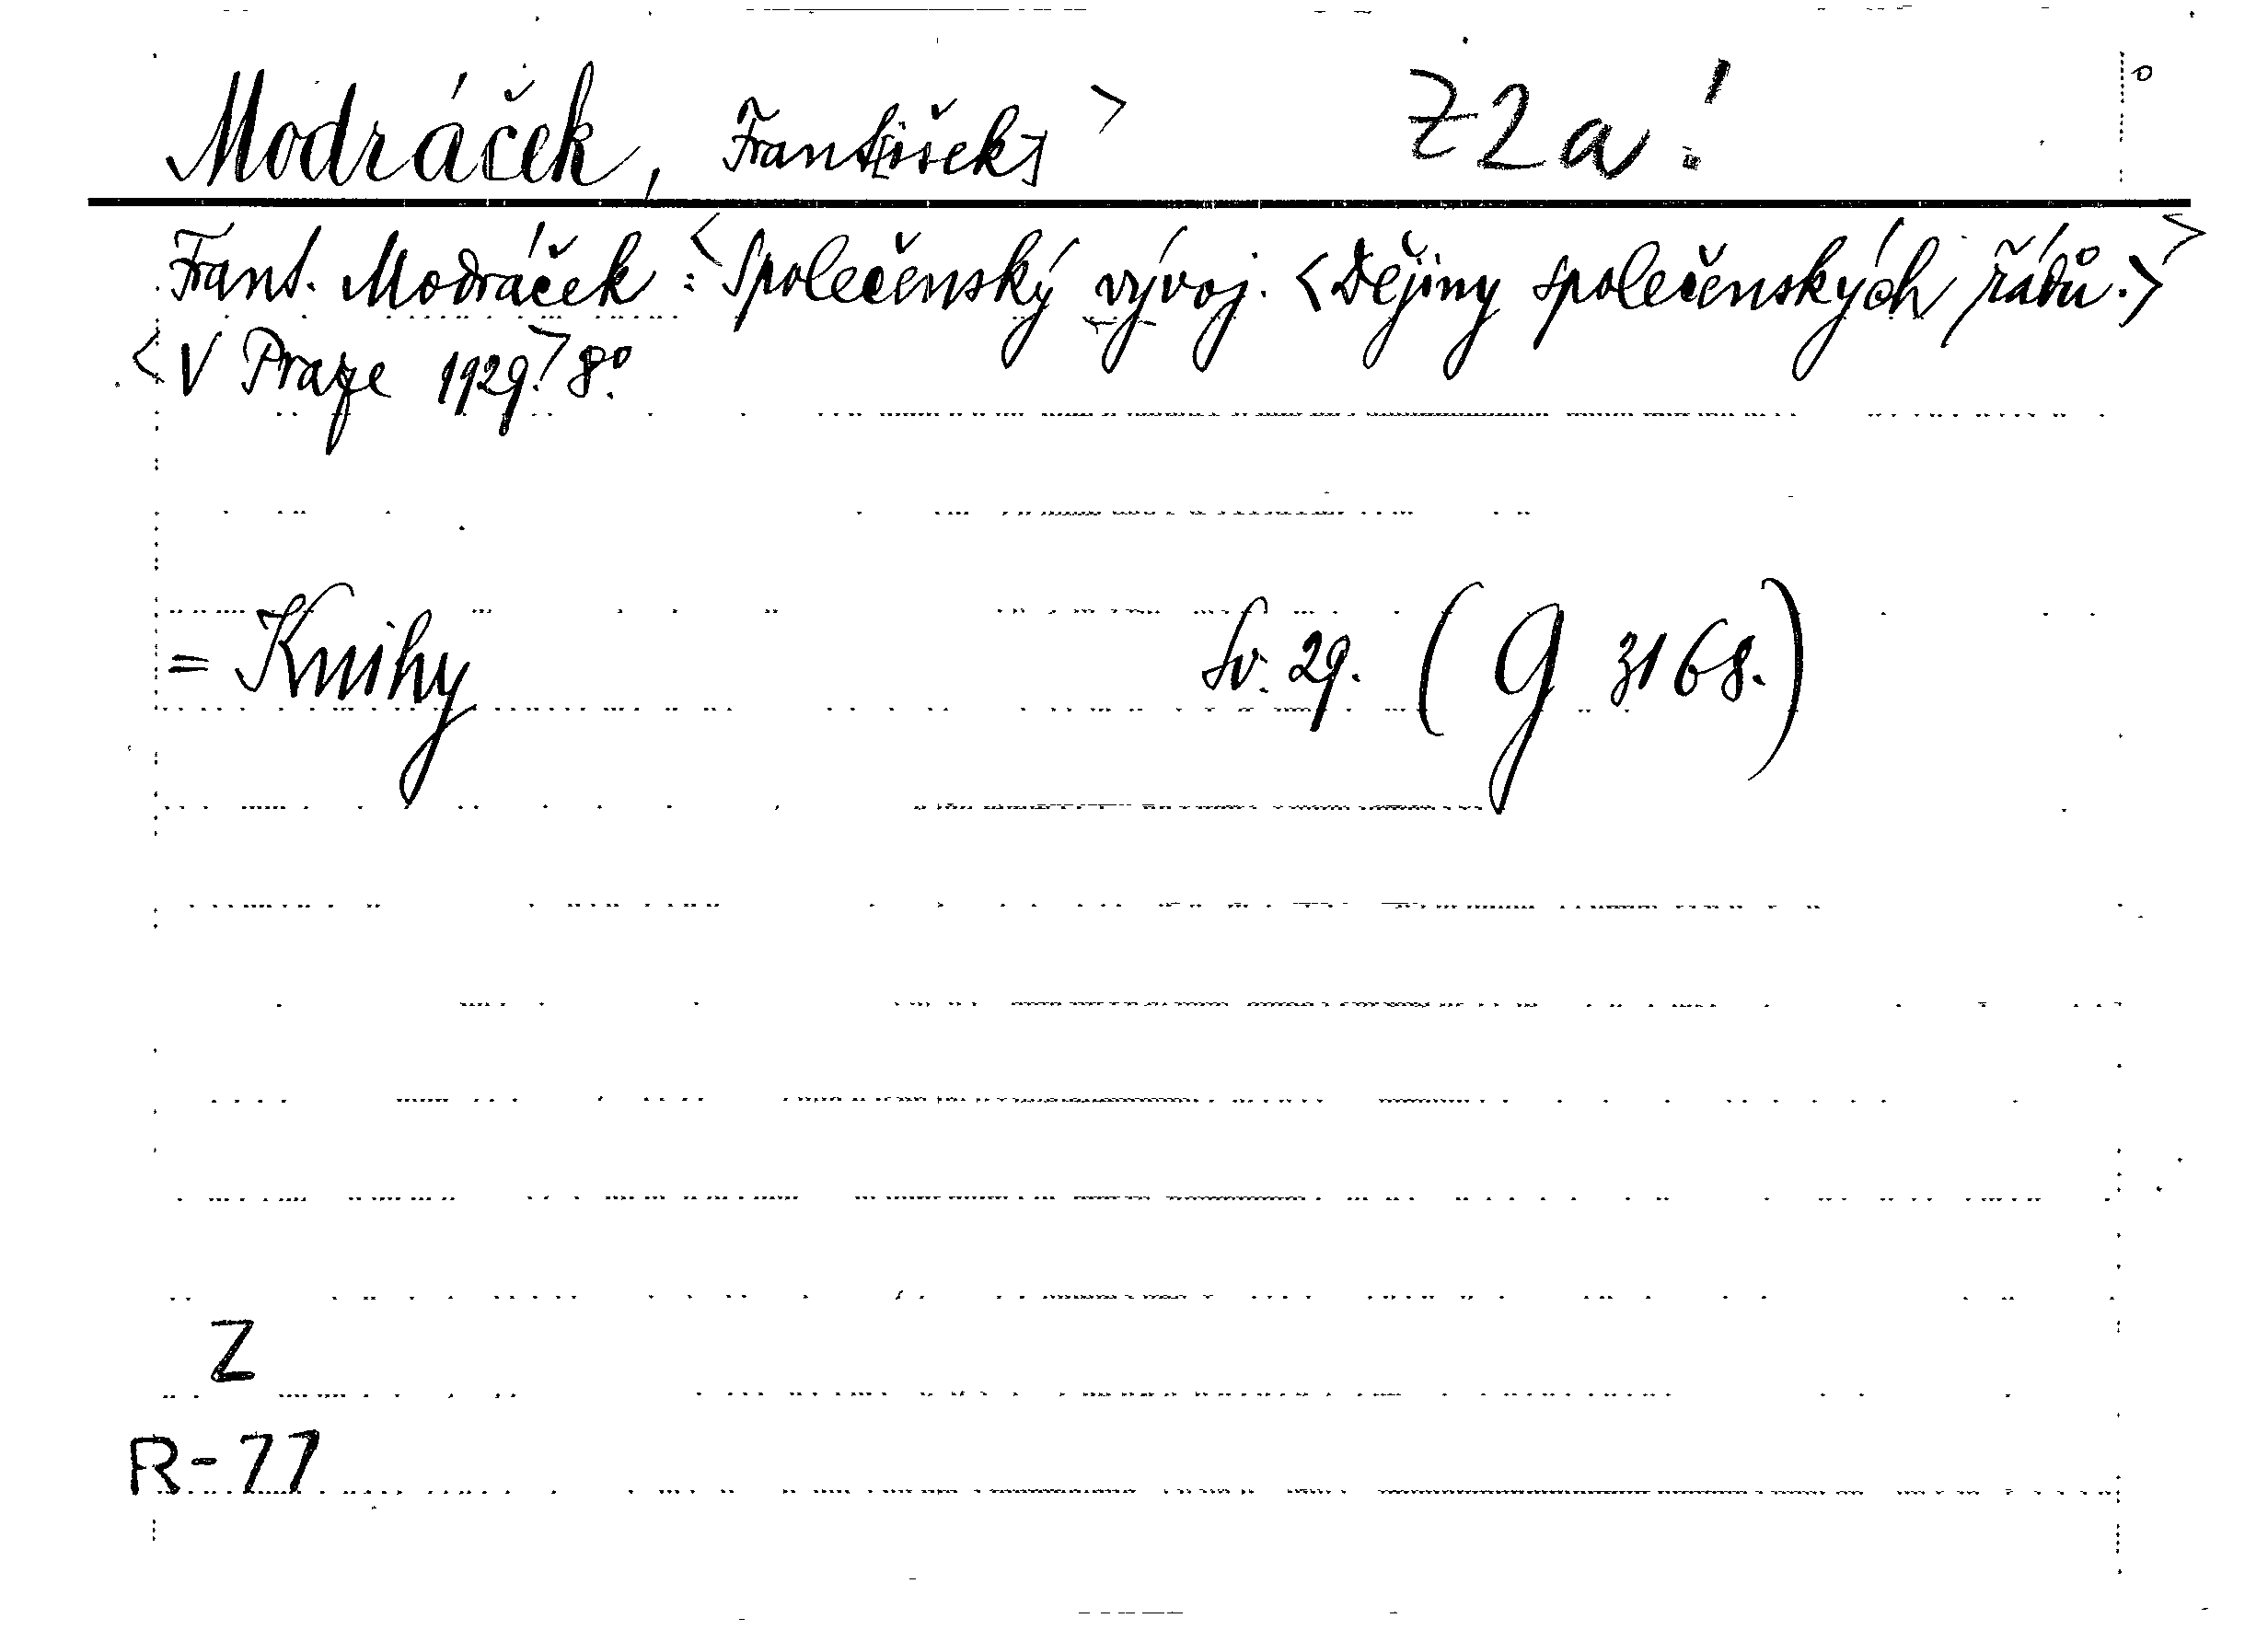 Modráček, Frant[išek] > Z2a!
Frant. Modráček: <Společenský vývoj. <Dějiny společenských řádů.>>
<V Praze 1929.> 8º.
= Knihy Sv. 29. (G 3168.)
Z
R-77